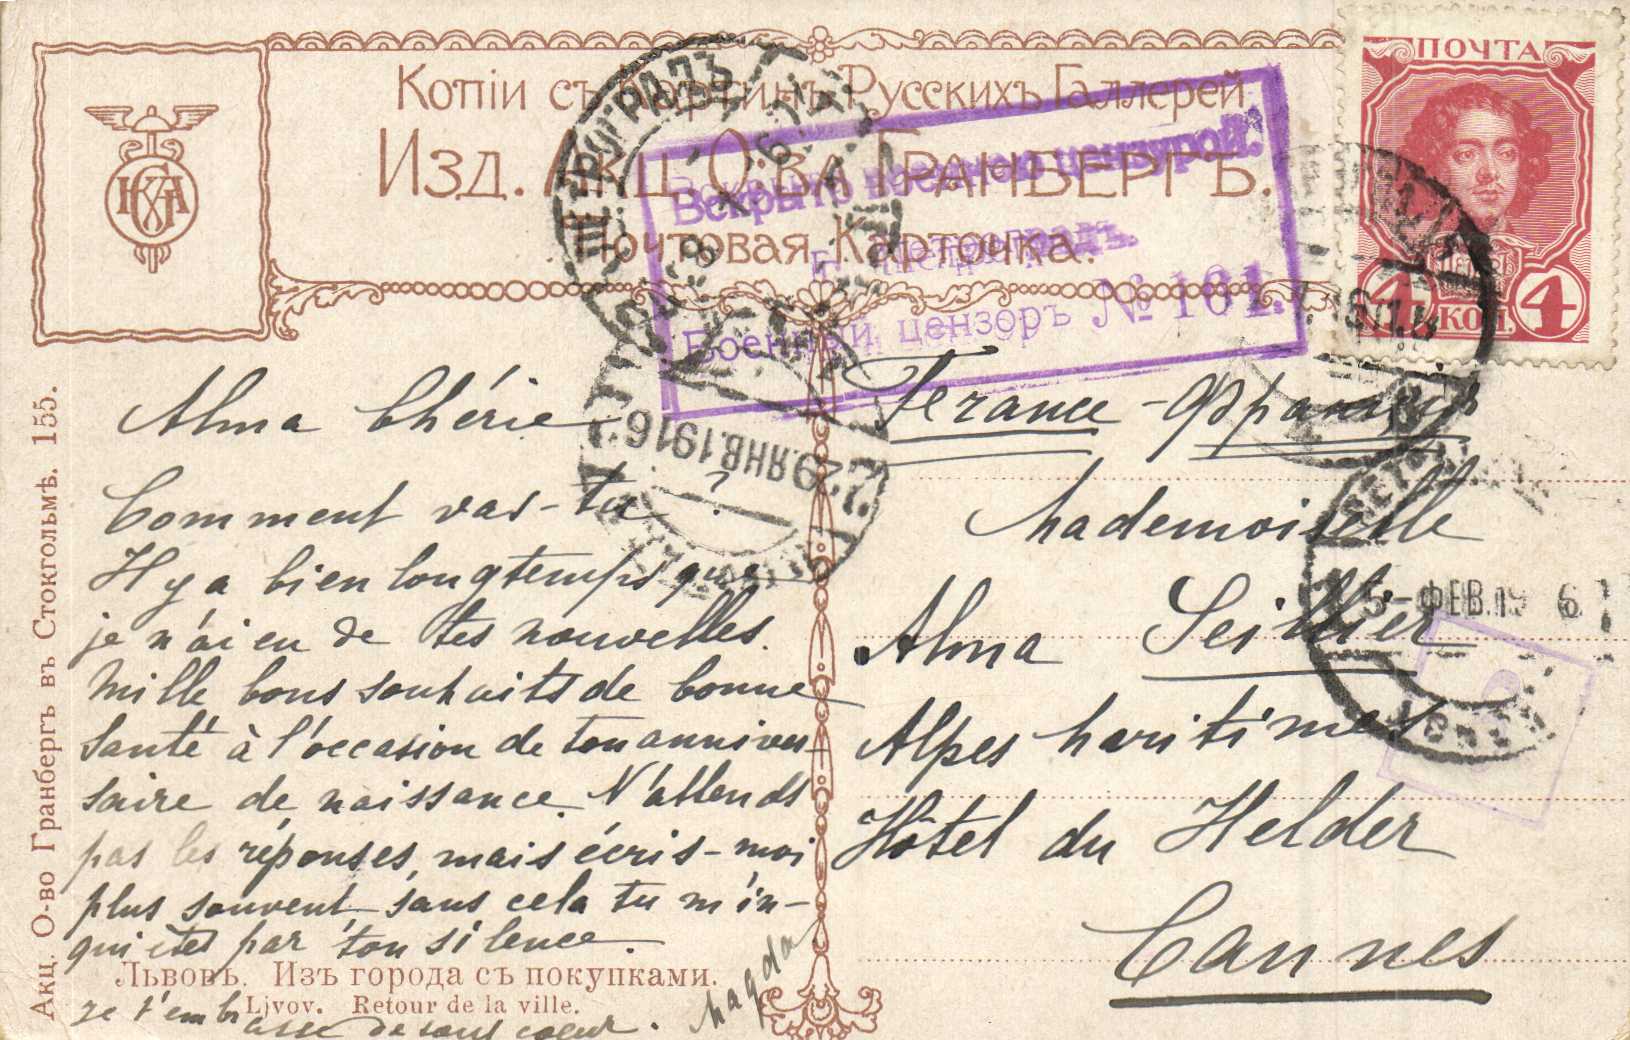 Копіи съ Картинъ Русскихъ Галлерей
Изд. Акц. О-ва Гранбергъ.
Почтовая Карточка.
ПОЧТА
4 КОП. 4
ПЕТРОГРАДЪ
Вскрыто военною цензурой.
Петроградъ.
Военный цензоръ № 161.
29 ЯНВ. 1916
5 - ФЕВ. 19 6
Акц. О-во Гранбергъ въ Стокгольмѣ. 155.
Alma Chérie
Comment vas-tu ?
Il y a bien longtemps que
je n'ai eu de tes nouvelles.
Mille bons souhaits de bonne
Santé à l'occasion de ton anniver-
saire de naissance. N'attends
pas les réponses, mais écris-moi
plus souvent, sans cela tu m'in-
quiètes par ton silence.
Je t'embrasse de tout coeur.
Magda
Львовъ. Изъ города съ покупками.
Ljvov. Retour de la ville.
France - Франція
Mademoiselle
Alma Seithier
Alpes Maritimes
Hôtel du Helder
Cannes